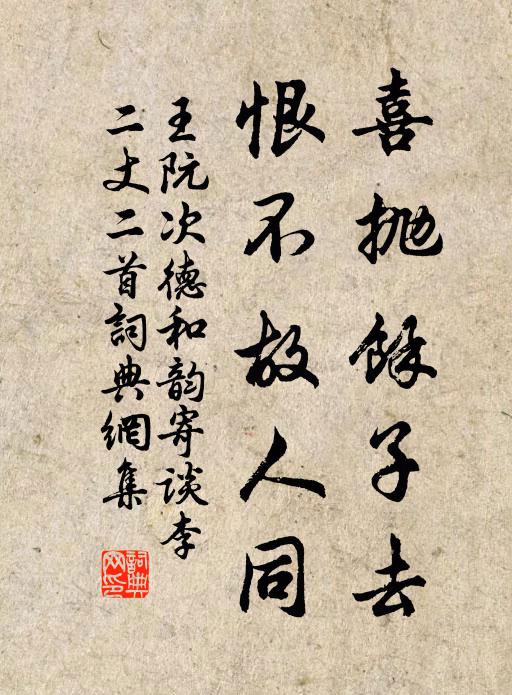 喜抛餘子去
恨不故人同
王阮次德和韵寄谈李
二丈二首詞典網集
詞典網印